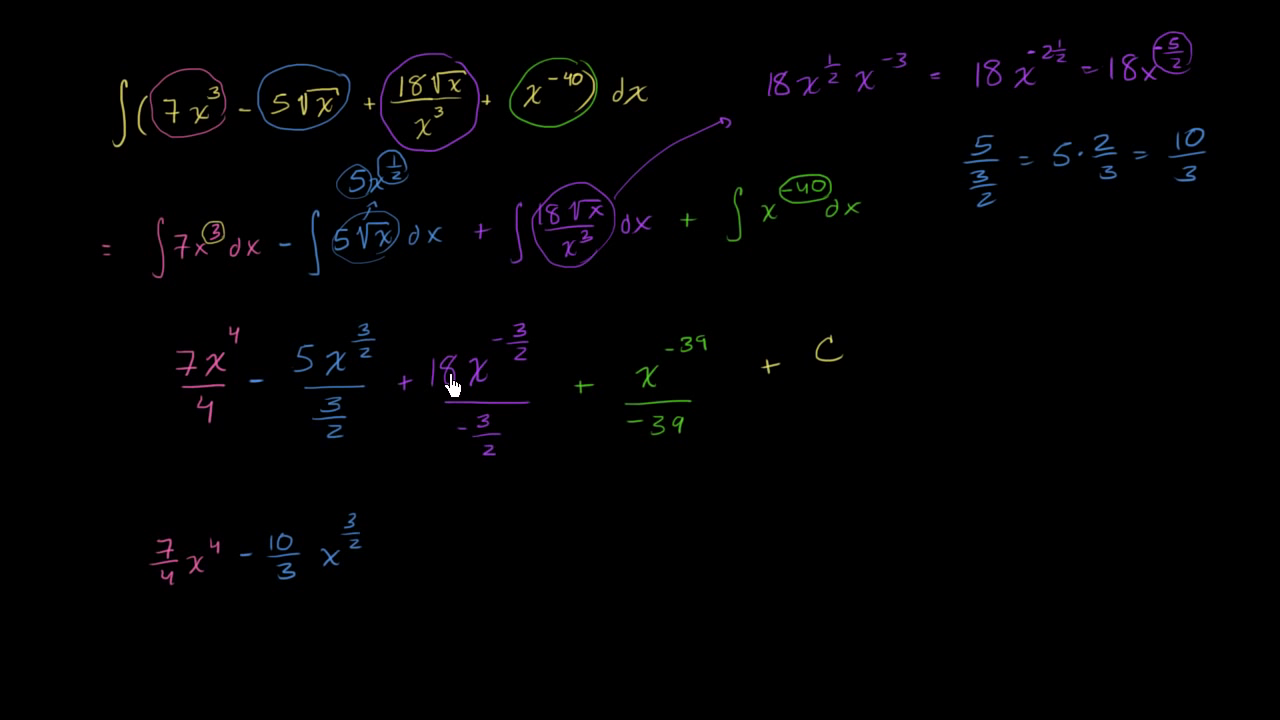 ∫(7x³ - 5√x + 18√x/x³ + x⁻⁴⁰) dx
18x^(1/2) x⁻³ = 18x^(-2 1/2) = 18x^(-5/2)
5/(3/2) = 5 · 2/3 = 10/3
5x^(1/2)
= ∫7x³dx - ∫5√x dx + ∫18√x/x³ dx + ∫x⁻⁴⁰dx
7x⁴/4 - 5x^(3/2)/(3/2) + 18x^(-3/2)/(-3/2) + x⁻³⁹/-39 + C
7/4 x⁴ - 10/3 x^(3/2)